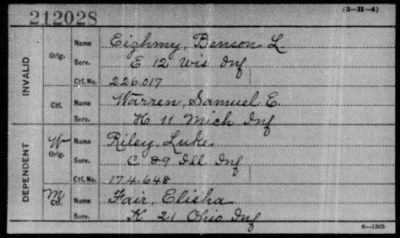 212028 (3-11-4)
INVALID
Orig. Name Eighmy, Benson L.
Serv. E 12 Wis Inf
Ctf. No. 226.017
Ctf. Name Warren, Samuel E.
Serv. H 11 Mich Inf
DEPENDENT
W Orig. Name Riley, Luke
Serv. C 89 Ill Inf
Ctf. No. 174.648
M Ctf. Name Fair, Elisha
Serv. K 21 Ohio Inf
6-1305